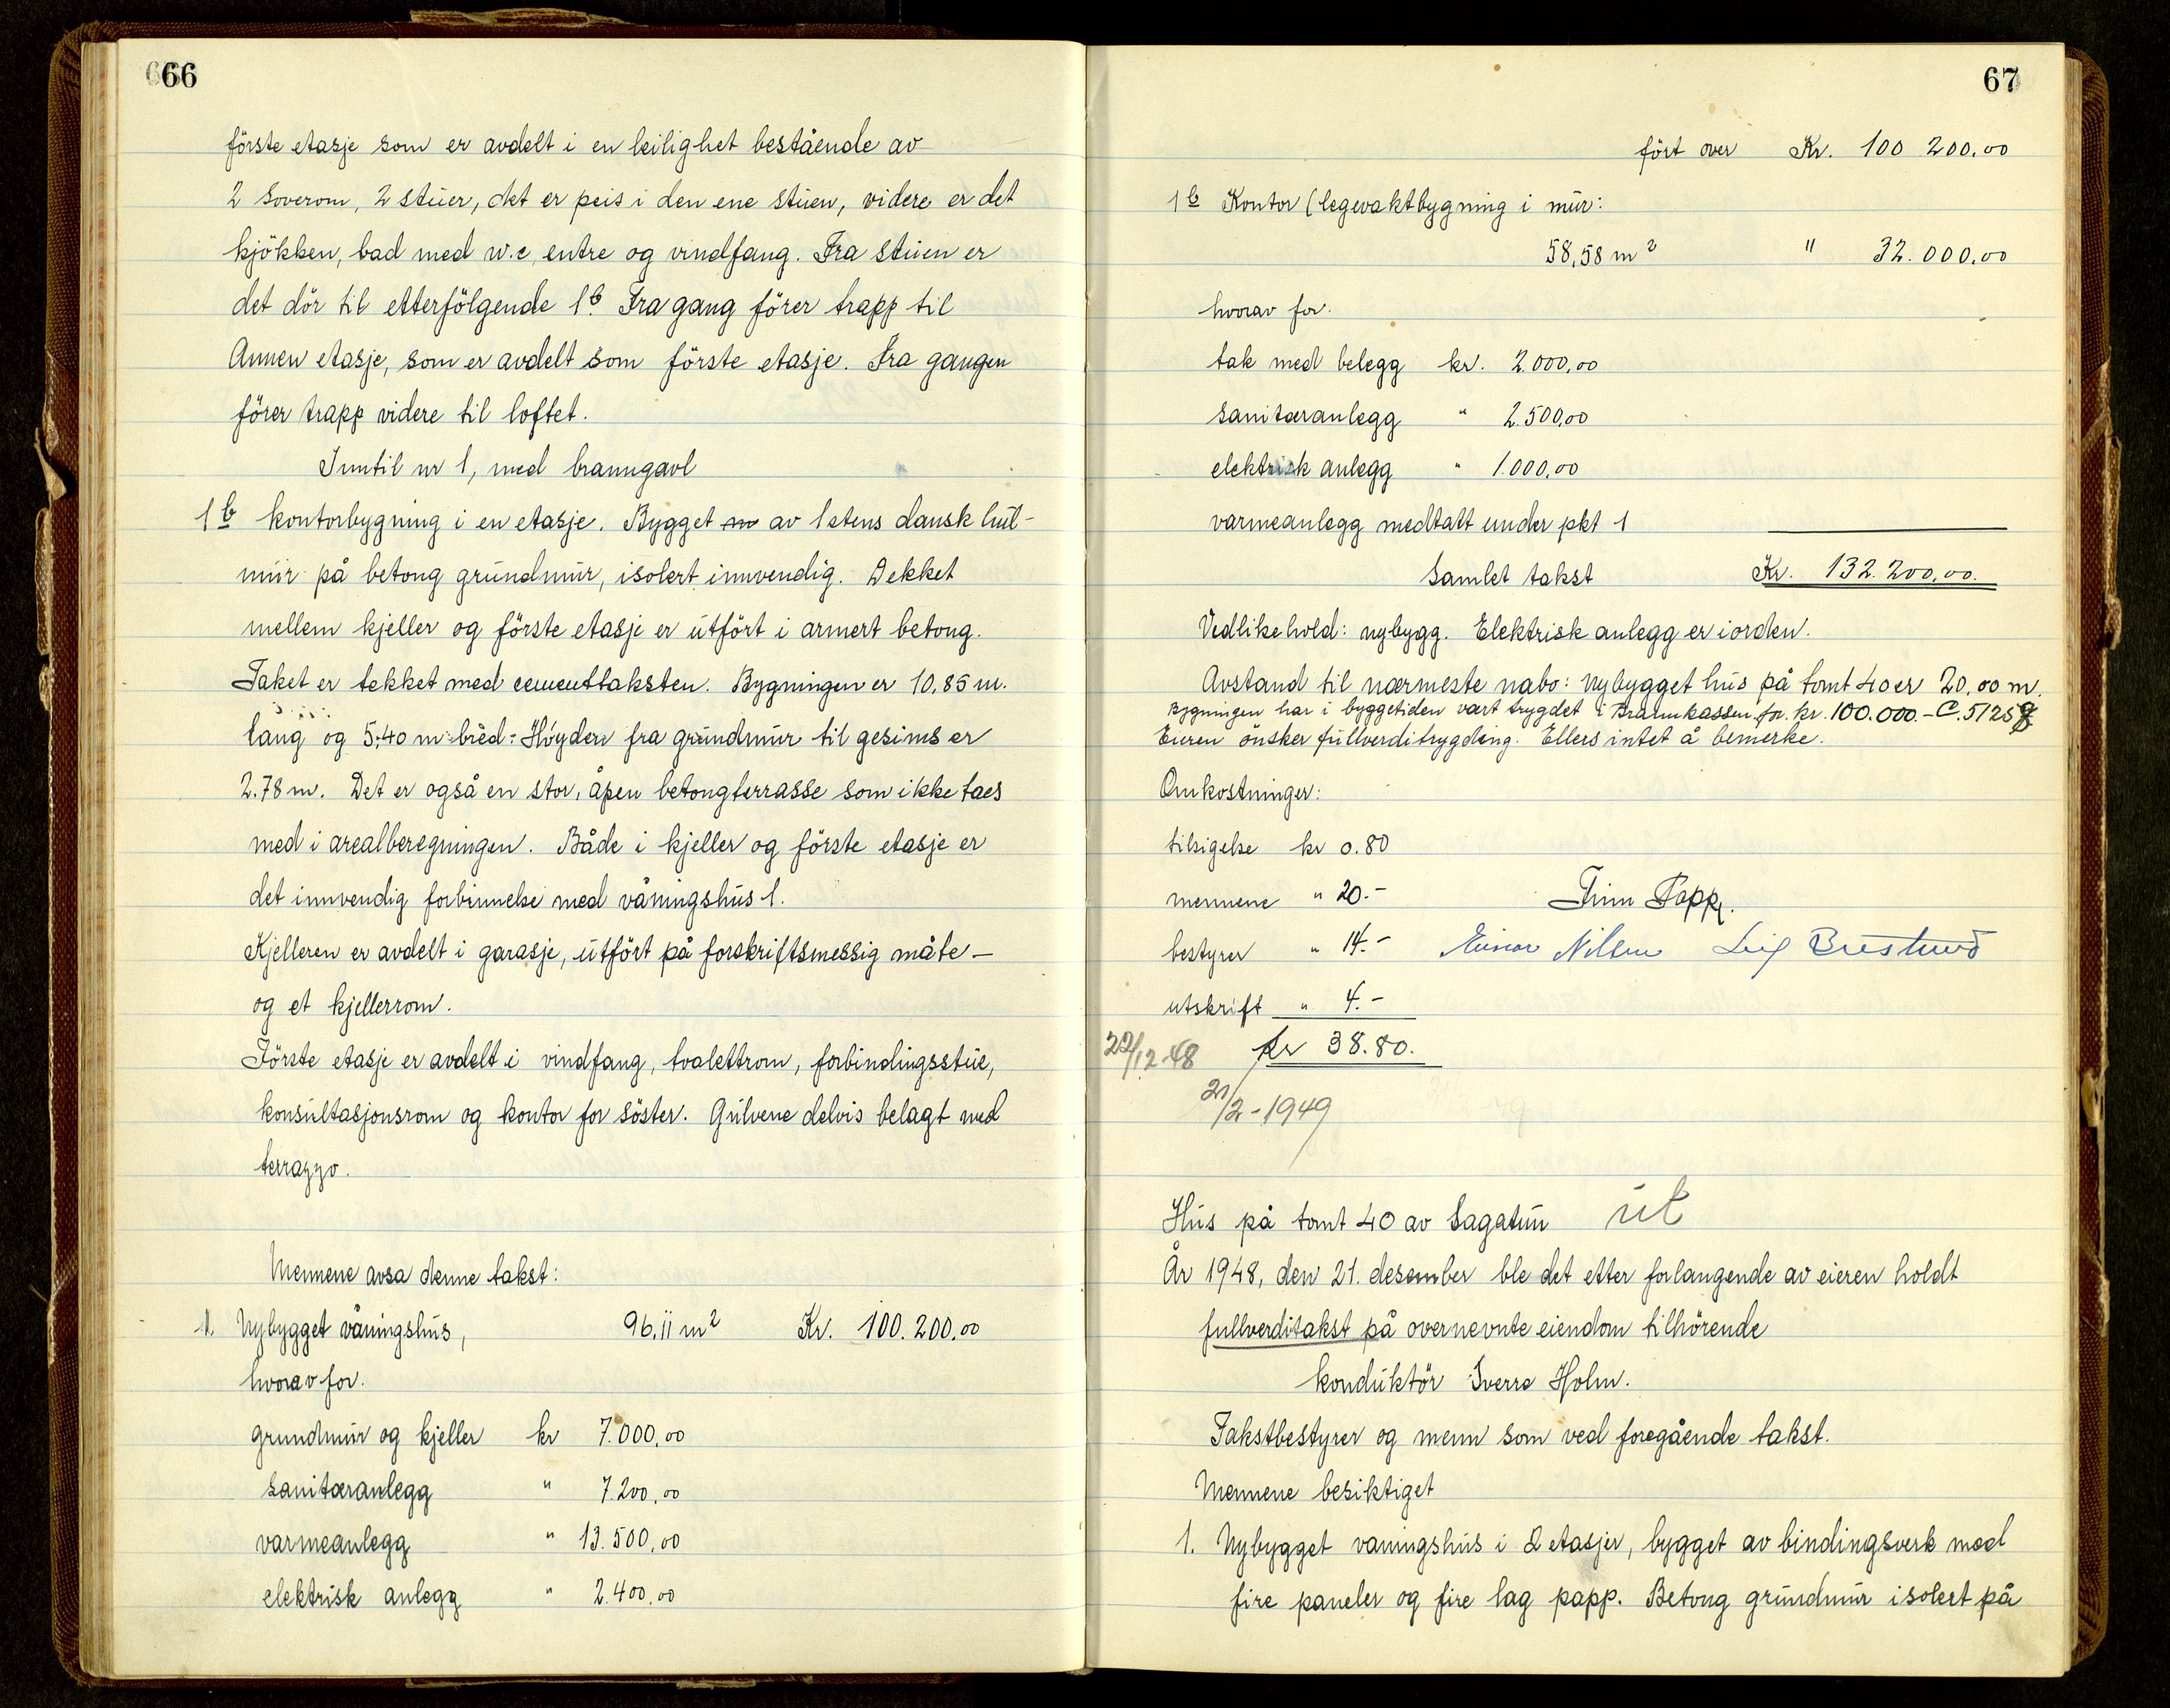 66
förste etasje som er avdelt i en leilighet bestående av
2 soverom, 2 stuer, det er peis i den ene stuen, videre er det
kjökken, bad med w.c, entre og vindfang. Fra stuen er
det dör til etterfölgende 1b Fra gang förer trapp til
Annen etasje, som er avdelt som förste etasje. Fra gangen
förer trapp videre til loftet.
Inntil nr 1, med branngavl
1b kontorbygning i en etasje. Bygget av 1stens dansk hul-
mur på betong grundmur, isolert innvendig. Dekket
mellem kjeller og förste etasje er utfört i armert betong.
Taket er tekket med cementtaksten. Bygningen er 10,85 m.
lang og 5,40 m bred. Höyden fra grundmur til gesims er
2.78 m. Det er også en stor, åpen betongterrasse som ikke taes
med i arealberegningen. Både i kjeller og förste etasje er
det innvendig forbinnelse med våningshus 1.
Kjelleren er avdelt i garasje, utfört på forskriftsmessig måte –
og et kjellerrom.
Förste etasje er avdelt i vindfang, toalettrom, forbindingsstue,
konsultasjonsrom og kontor for söster. Gulvene delvis belagt med
terrazzo.
Mennene avsa denne takst:
1. Nybygget våningshus, 96,11 m² Kr. 100.200,00
hvorav for.
grundmur og kjeller kr 7.000,00
sanitæranlegg " 7.200,00
varmeanlegg " 13.500,00
elektrisk anlegg " 2.400,00
67
fört over Kr. 100 200,00
1b Kontor (legevaktbygning i mur:
58,58 m² " 32.000,00
hvorav for.
tak med belegg kr. 2.000,00
sanitæranlegg " 2.500,00
elektrisk anlegg " 1.000,00
varmeanlegg medtatt under pkt 1
Samlet takst Kr. 132.200,00.
Vedlikehold: nybygg. Elektrisk anlegg er iorden.
Avstand til nærmeste nabo: nybygget hus på tomt 40 er 20,00 m.
Bygningen har i byggetiden vært trygdet i Brannkassen for kr. 100.000.- C.51258
Eieren önsker fullverditrygding. Ellers intet å bemerke.
Omkostninger:
tilsigelse kr 0.80
mennene " 20.-
Finn Papp.
bestyrer " 14.- Einar Nilsen Leif
utskrift " 4.-
22/12-48 kr 38.80.
21/2-1949
Hus på tomt 40 av Sagatun ut
År 1948, den 21. desember ble det etter forlangende av eieren holdt
fullverditakst på overnevnte eiendom tilhörende
konduktör Sverre Holm.
Takstbestyrer og menn som ved foregående takst.
Mennene besiktiget
1. Nybygget vaningshus i 2 etasjer, bygget av bindingsverk med
fire paneler og fire lag papp. Betong grundmur isolert på